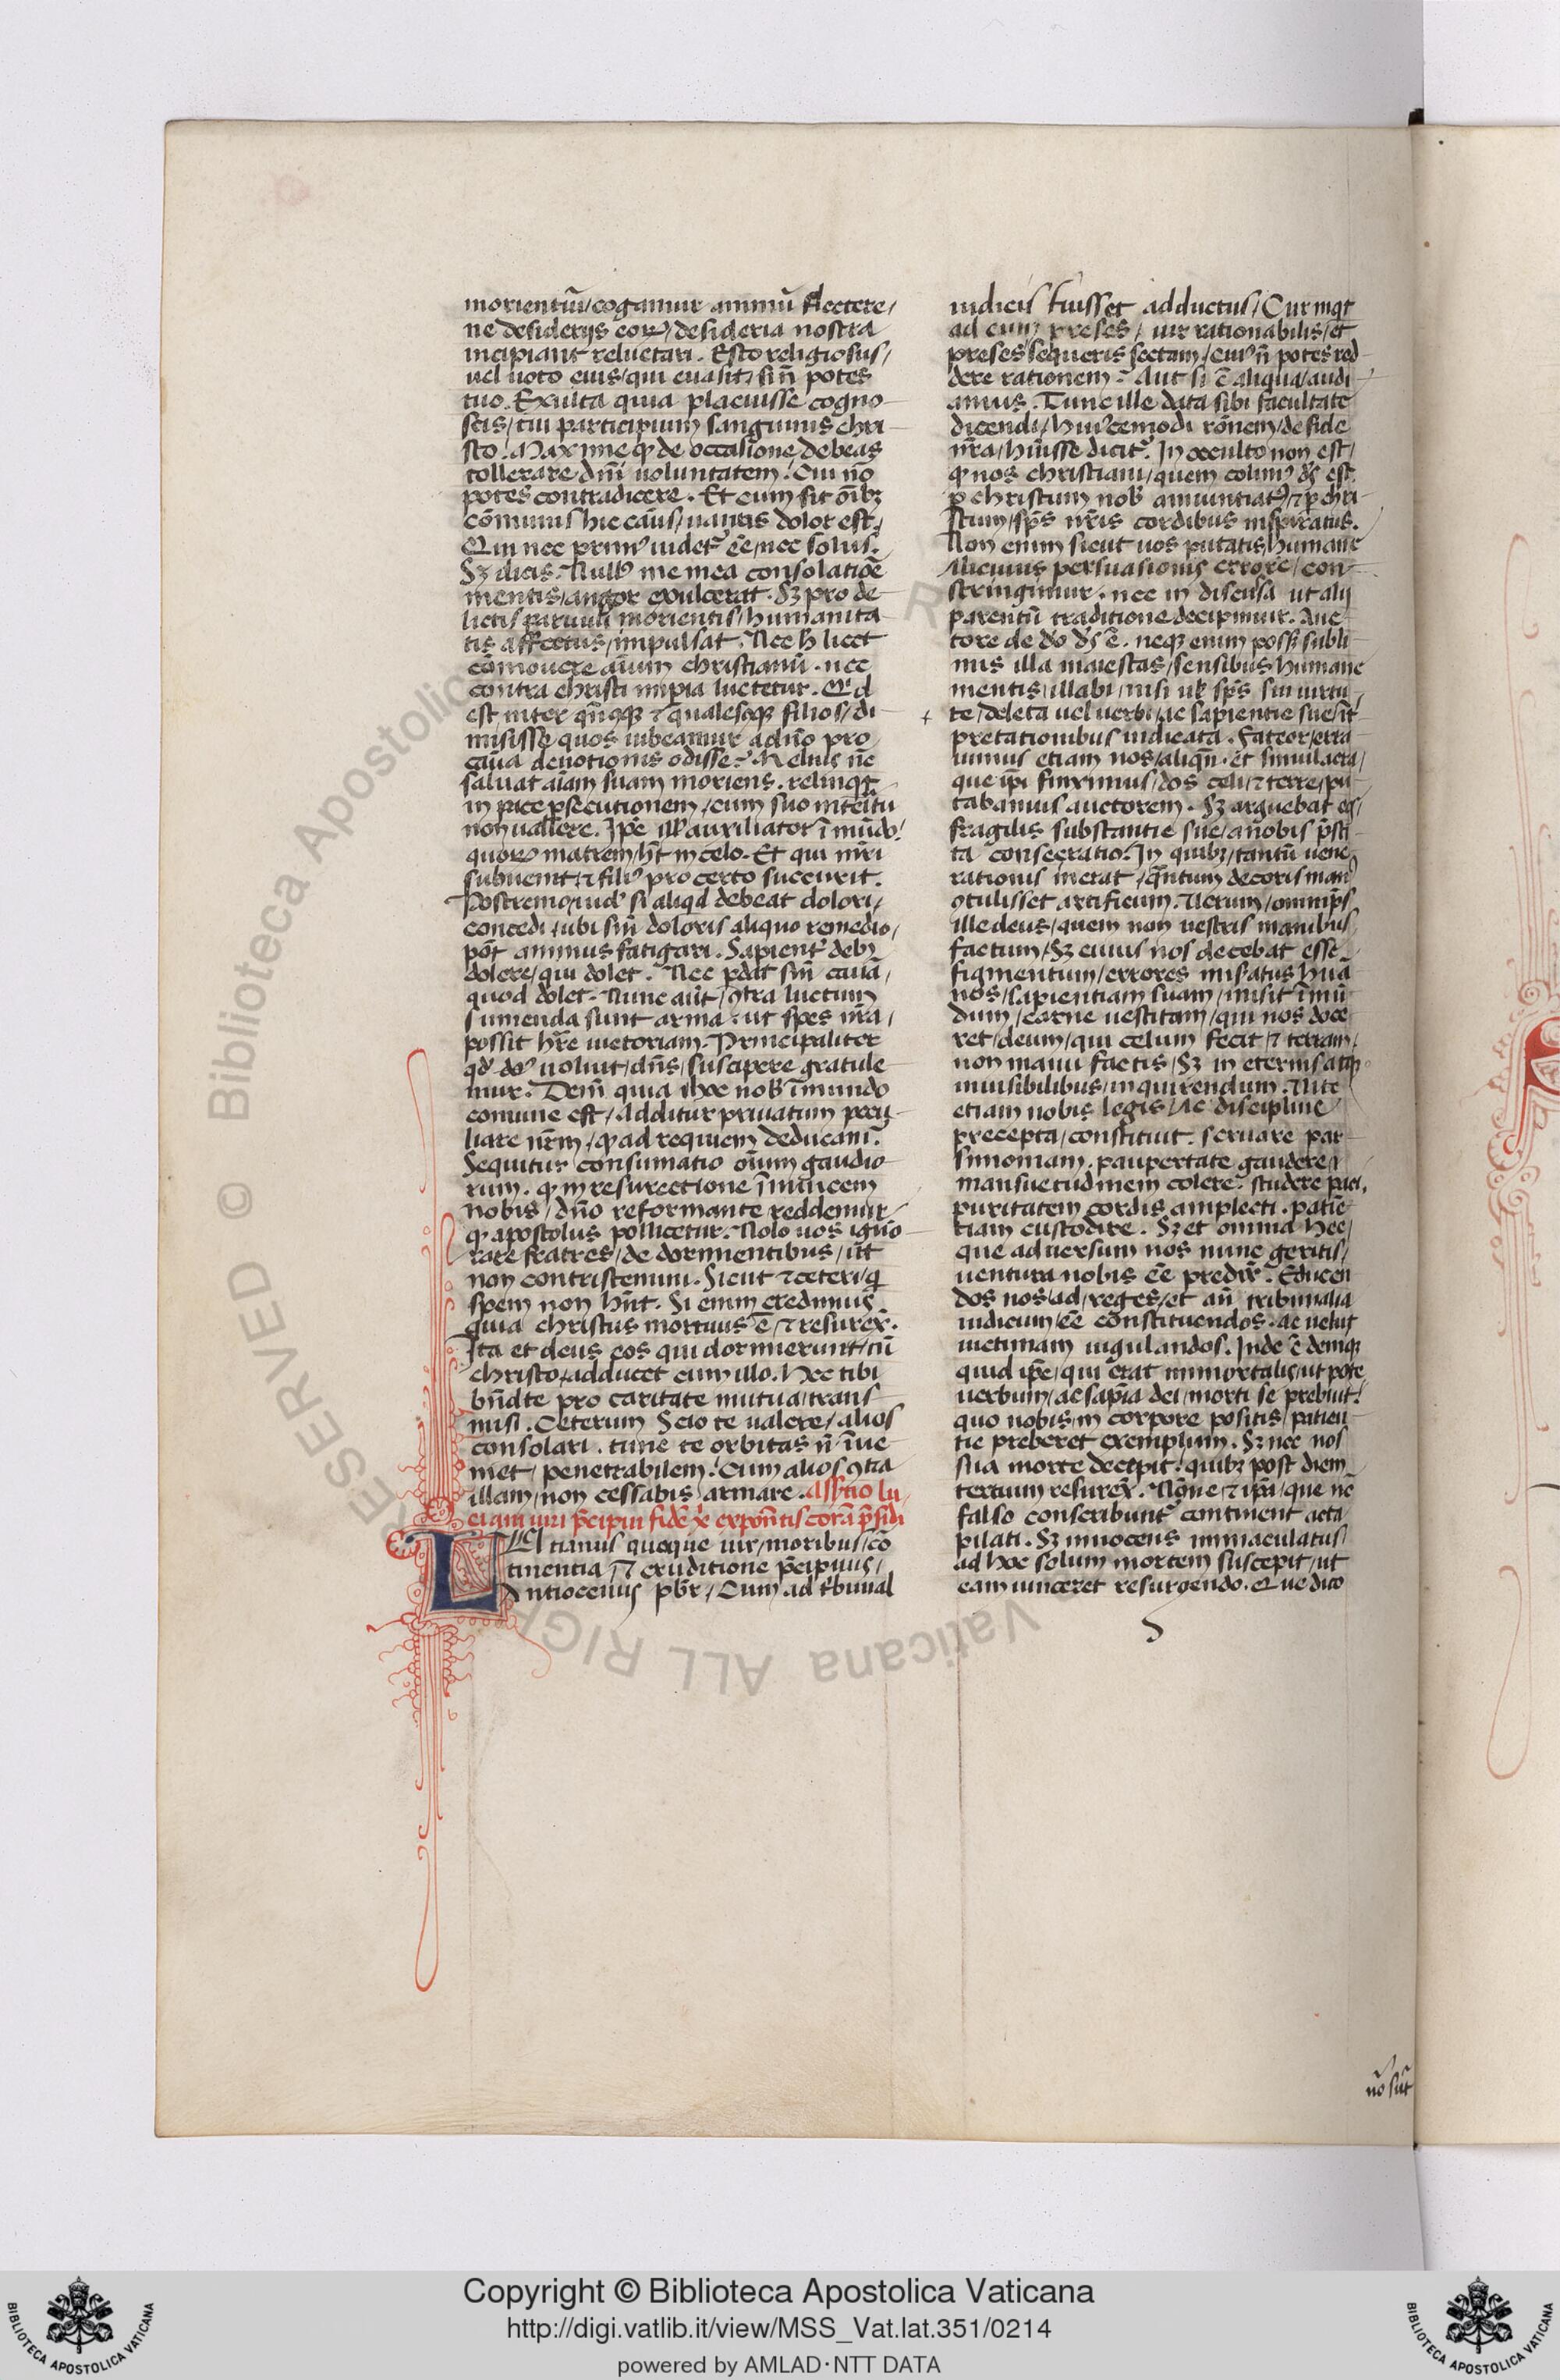 morientiū/cogamur animū flectere/
ne desiderijs eoꝝ/desideria nostra
incipiant reluctari. Esto religiosus/
uel uoto eius/qui euasit/si n̄ potes
tuo. Exulta quia placuisse cogno
scis/tui participium sanguinis chri
sto. Maxime qꝫ de occasione/debeas
tollerare dn̄i uoluntatem. Cui nō
potes contradicere. Et cum sit oībꝫ
cōmunis hic cāus/uanus dolor est/
Qui nec primꝰ uidet̄ eē/nec solus.
Sꝫ dicis. Nullꝰ me mea consolatiōe
mentis/angor exulcerat. Sꝫ pro de
lictis paruuli morientis/humanita
tis affectus/impulsat. Nec h̄ licet
cōmouere aīum christianū. nec
contra christi impia luctetur. Qͥd
est inter qn̄qꝫ ⁊ qualescqꝫ filios/di
misisse quos iubeamur a dn̄o pro
cāua deuotionis odisse? Melius n̄e
saluat aīam suam moriens. relinqt
in pace ꝑsecutionem/cum suo interitu
non uallere. Ip̄e illꝰ auxiliator ī mūdo.
quoꝝ matrem/hn̄t in celo. Et qui mr̄i
subuenit/⁊ filiꝰ pro certo succurit.
Postremo/uidꝰ si aliqd debeat dolori/
concedi/ubi sin̄ doloris aliquo remedio/
pōt animus fatigari. Sapient̄ debꝫ
dolere/qui dolet. Nec ꝑdat sin̄ cauā/
quod dolet. Nunc aūt/ꝯtra luctum
sumenda sunt arma. ut spes nr̄a/
possit hr̄e uictoriam. Principaliter
qd̄ doꝰ uoluit/dn̄s/suscipere gratule
mur. Dein̄ quia hoc nobꝭ ī mundo
comune est/Additur priuatum pecu
liare nr̄m/qꝫ ad requiem deducam̄.
Sequitur consumatio oīum gaudio
rum. qꝫ in resurectione īuincem
nobis/dn̄o reformante reddemur/
qꝫ apostolus pollicetur. Nolo uos igno
rare fratres/de dormientibus/ut
non contristemini. Sicut ⁊ ceteri/q̄
spem non hn̄t. Si enim credimus
quia christus mortuus ē/⁊ resurēx.
Ita et deus eos qui dormierunt/cū
christo/adducet cum illo. Hec tibi
bn̄dte pro caritate mutua/trans
misi. Ceterum Scio te ualere/alios
consolari. tunc te orbitas n̄ īue
niet/penetrabilem. Cum alios ꝯtra
illam/non cessabis armare. Assertio lu
ciani uiri p̄cipui fidē xͥ exponētis corā p̄sidi
LUCianus quoque uir/moribus/cō
tinentia/⁊ eruditione p̄cipuus/
Antiocenus pb̄r/Cum ad t̄bunal
iudicis fuisset adductus/Cur inqt
ad eum preses/uir rationabilis/et
preses sequeris sectam/cuiꝰ n̄ potes red
dere rationem? Aut si ē aliqua/audi
amus. Tunc ille data sibi facultate
dicendi/huiꝰcemodi rōnem/de fide
nr̄a/hūisse dicit̄. In occulto non est/
qꝫ nos christiani/quem colimꝰ dꝰ est
ꝑ christum nobꝭ annuntiatꝰ/⁊ ꝑ chri
stum/sp̄s nr̄is cordibus inspiratus.
Non enim sicut uos putatis/humane
alicuius persuasionis errore/con
stringimur. nec in discusa ut alij
parentū traditione decipimur. Auc
tore de do dꝰ ē. neqꝫ enim poss̄ subli
mis illa maiestas/sensibus humane
mentis/illabi/nisi uł sp̄s sui uirtu
te/delata uel uerbi/ac sapientie sue/int̄
pretationibus iudicata. Fateor/erra
uimus etiam nos/aliqn̄. et simulacra/
que ip̄i finximus/dos celi/⁊ terre/pu
tabamus auctorem. Sꝫ arguebat eos/
fragilis substantie sue/a nobis p̄sti
ta consecratio. In quibꝫ/tantū uene
rationis inerat/qn̄tum decoris manꝰ
ꝯtulisset artificum. Uerum/omnip̄s
ille deus/quem non uestris manibus
factum/Sꝫ cuius nos decebat esse
figmentum/errores mis̄atus huā
nos/sapientiam suam/misit ī mū
dum/carne uestitam/qui nos doce
ret/deum/qui celum fecit/⁊ terram/
non manu factis/Sꝫ in eternis atqꝫ
inuisibilibus/inquirendum. Uite
etiam nobis legis/ac discipline
precepta/constituit. seruare par
simoniam. paupertate gaudere/
mansuetudinem colere. studere paci.
puritatem cordis amplecti. patiē
tiam custodire. Sꝫ et omnia hec/
que aduersum nos nunc geritis/
uentura nobis eē predix̄. Educen
dos nos/ad reges/et an̄ tribunalia
iudicum/eē constituendos. ac uelut
uictimam iugulandos. Inde ē deniqꝫ
quid ip̄e/qui erat immortalis/ut pote
uerbum/ac sap̄ia dei/morti se prebuit.
quo nobis/in corpore positis/patien
tie preberet exemplum. Sꝫ nec nos
sua morte decepit. quibꝫ post diem
tertium resurēx. Nōne/⁊ ip̄a/que nē
falso conscribunt̄ continent acta
pilati. Sꝫ innocens immaculatus/
ad hoc solum mortem suscepit/ut
eam uinceret resurgendo. Que dico
nō sūt
Copyright © Biblioteca Apostolica Vaticana
http://digi.vatlib.it/view/MSS_Vat.lat.351/0214
powered by AMLAD·NTT DATA
BIBLIOTECA APOSTOLICA VATICANA
BIBLIOTECA APOSTOLICA VATICANA